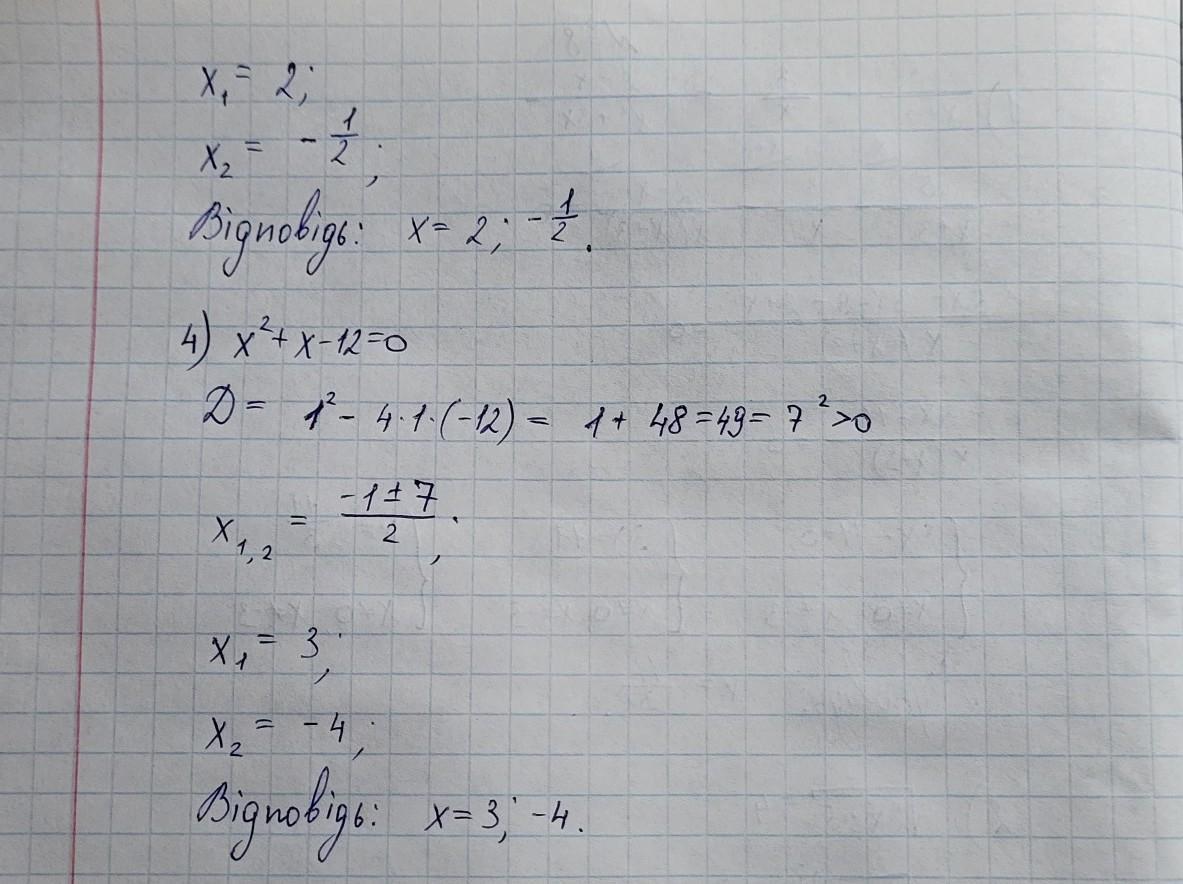 x₁ = 2;
x₂ = - 1/2;
Відповідь: x = 2; - 1/2.
4) x² + x - 12 = 0
D = 1² - 4·1·(-12) = 1 + 48 = 49 = 7² > 0
x₁,₂ = (-1 ± 7)/2;
x₁ = 3;
x₂ = -4;
Відповідь: x = 3; -4.